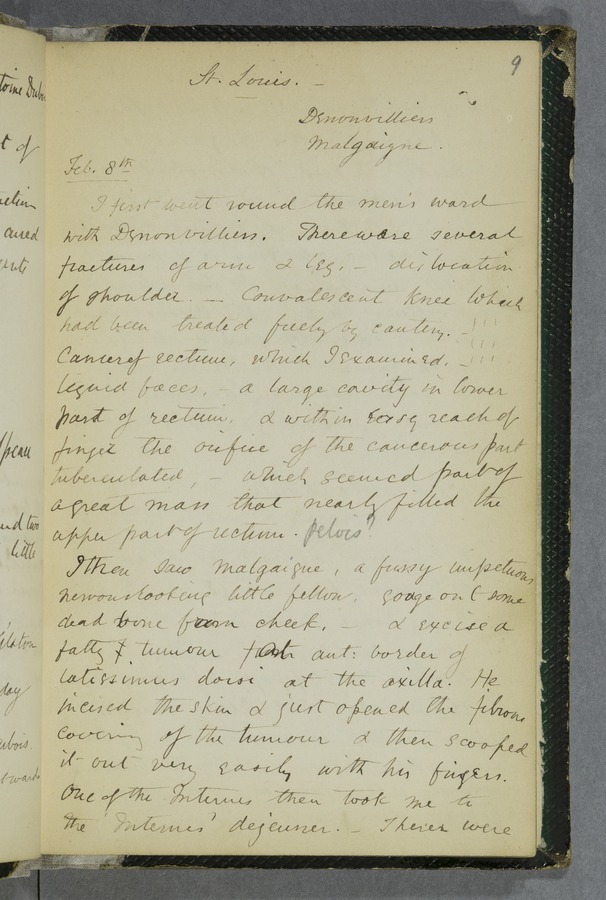 9
St. Louis. -
Denonvilliers
Malgaigne.
Feb. 8th
I first went round the men's ward
with Denonvilliers. There were several
fractures of arm & leg. - dislocation
of shoulder. - Convalescent knee which
had been treated freely by cautery. -
Cancer of rectum, which I examined. -
liquid fæces, - a large cavity in lower
part of rectum. & within easy reach of
finger the orifice of the cancerous part
tuberculated, - which seemed part of
a great mass that nearly filled the
upper part of rectum. pelvis?
I then saw Malgaigne, a fussy impetuous
nervous looking little fellow. gouge out some
dead bone from cheek. - & excise a
fatty tumour ant: border of
latissimus dorsi at the axilla. He
incised the skin & just opened the fibrous
covering of the tumour & then scooped
it out very easily with his fingers.
One of the Internes then took me to
the Internes' dejeuner. - There were
t of
cured
day
little